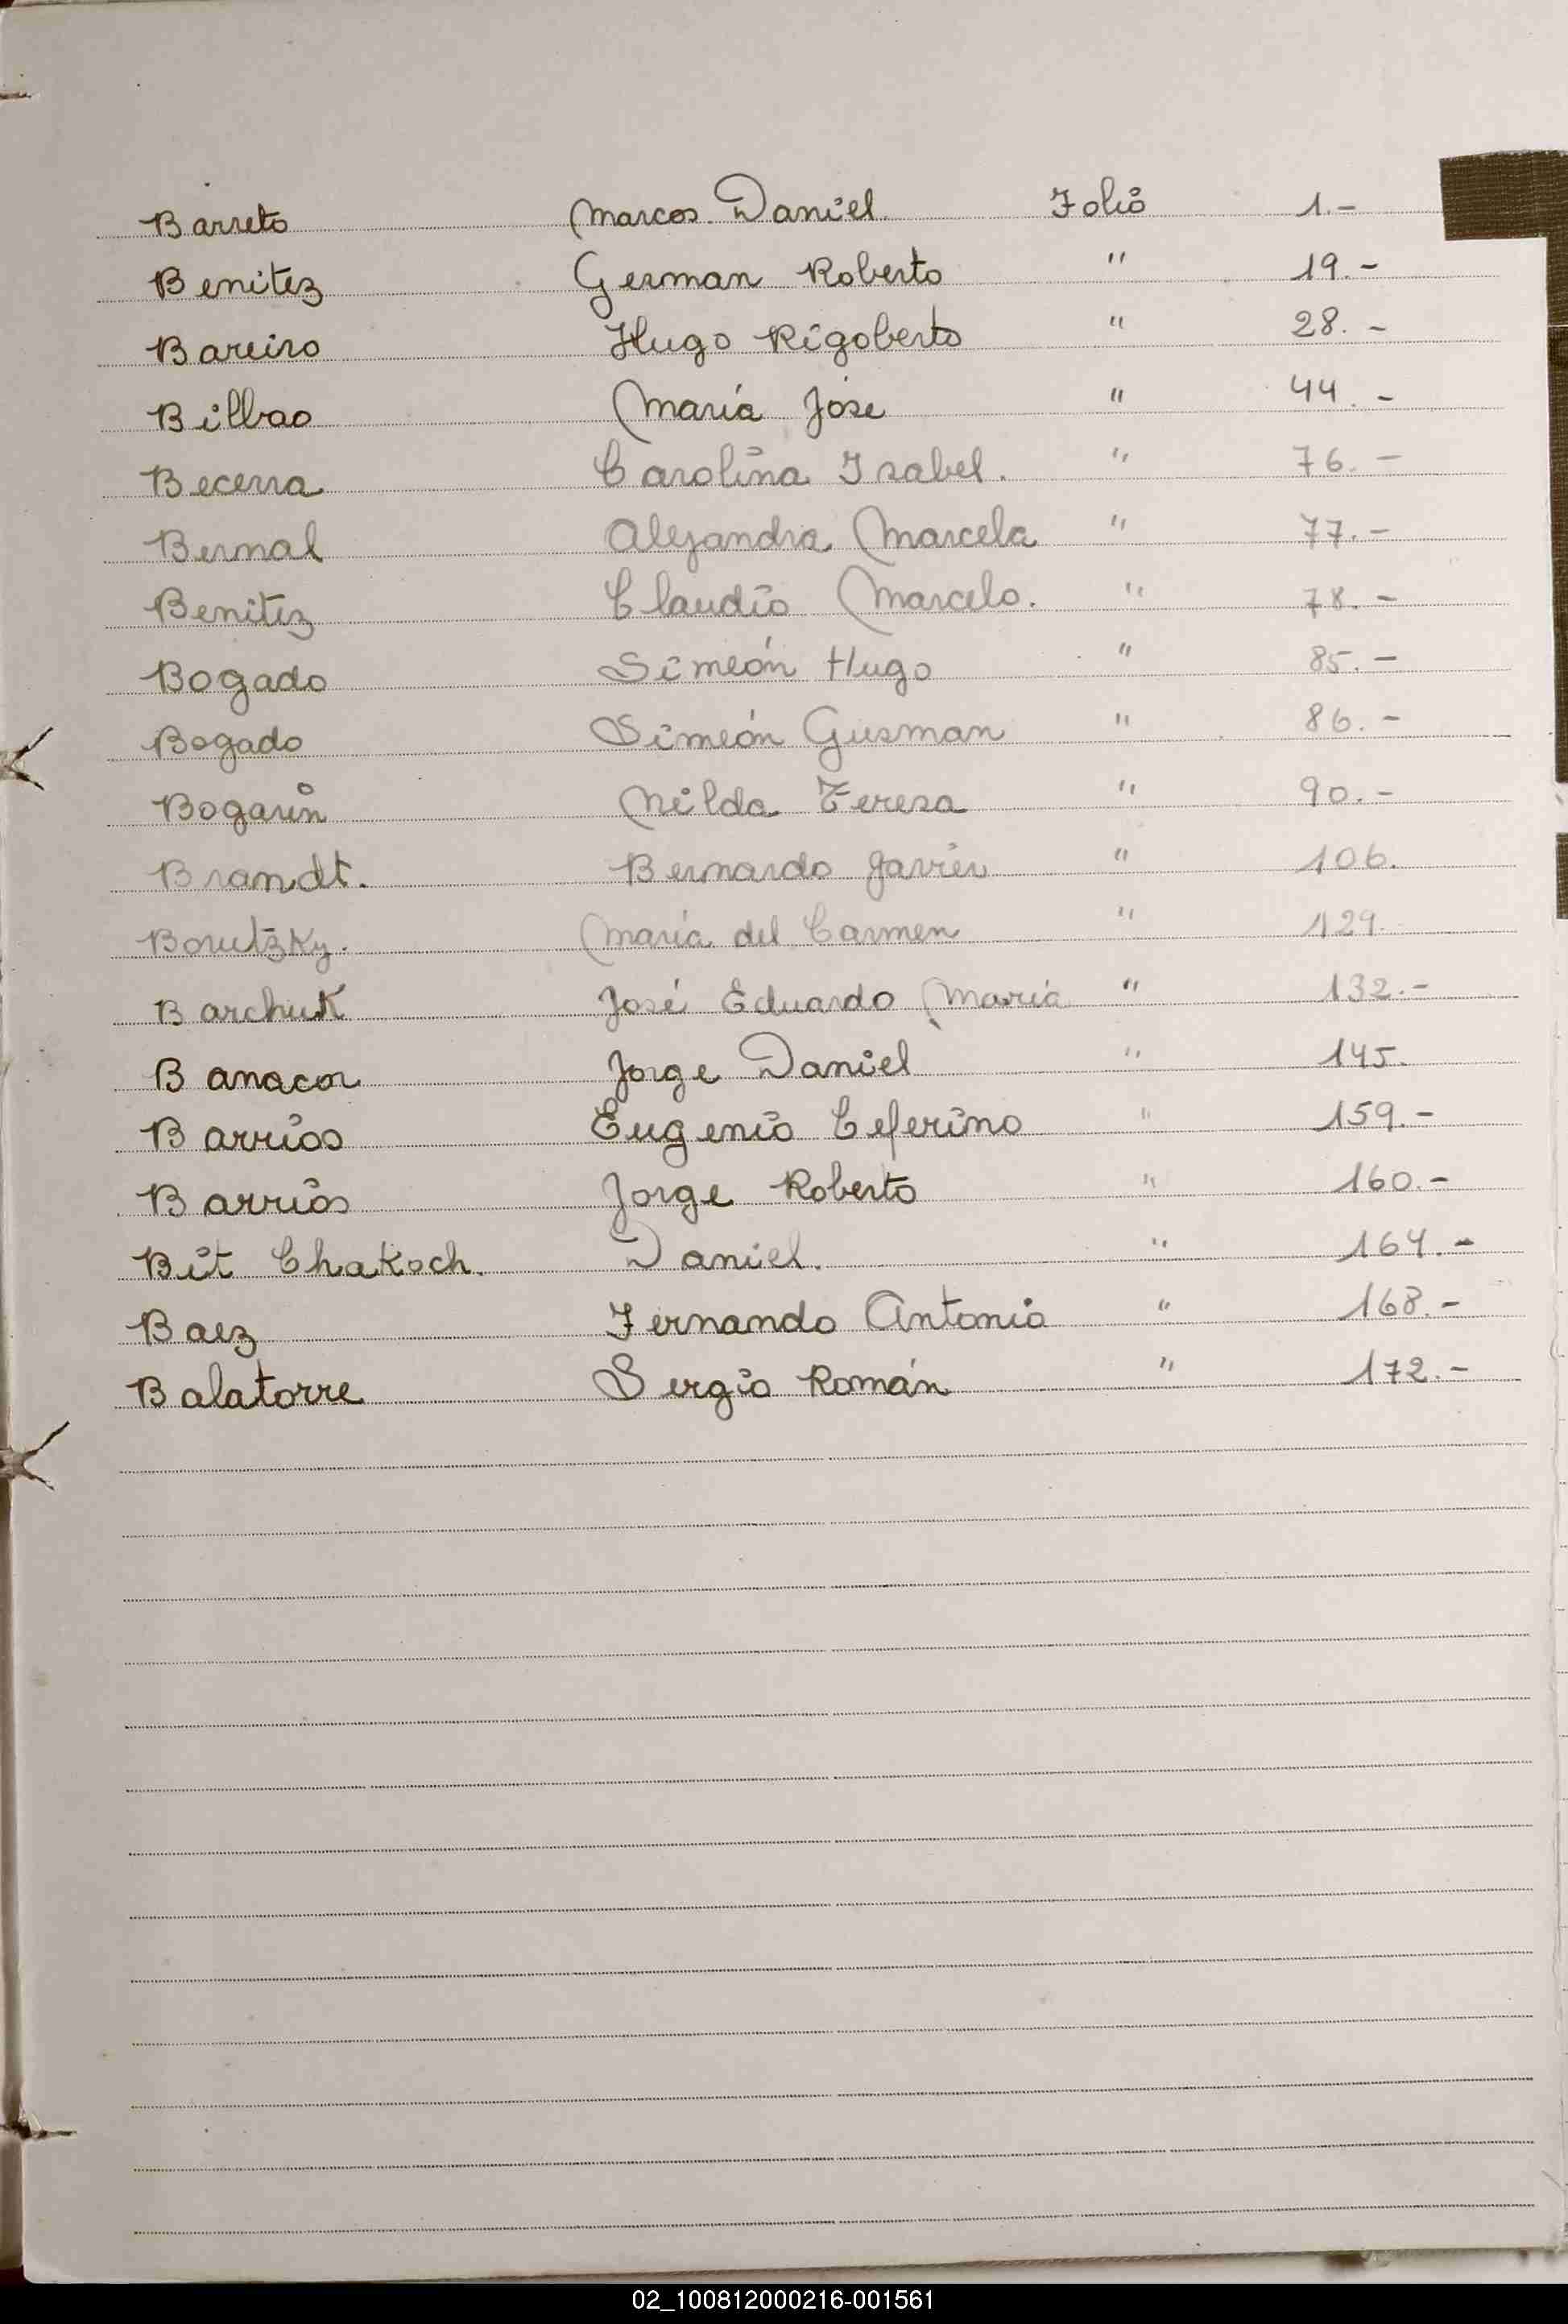 Barreto Marcos Daniel Folio 1.-
Benitez German Roberto " 19.-
Bareiro Hugo Rigoberto " 28.-
Bilbao María José " 44.-
Becerra Carolina Isabel. " 76.-
Bernal Alejandra Marcela " 77.-
Benitez Claudio Marcelo. " 78.-
Bogado Simeón Hugo " 85.-
Bogado Simeón Gusman " 86.-
Bogarin Nilda Teresa " 90.-
Brandt. Bernardo Javier " 106.
Borutzky. María del Carmen " 129.
Barchuk José Eduardo María " 132.-
Banacor Jorge Daniel " 145.
Barrios Eugenio Ceferino " 159.-
Barrios Jorge Roberto " 160.-
Bit Chakoch. Daniel. " 164.-
Baez Fernando Antonio " 168.-
Balatorre Sergio Román " 172.-
02_100812000216-001561